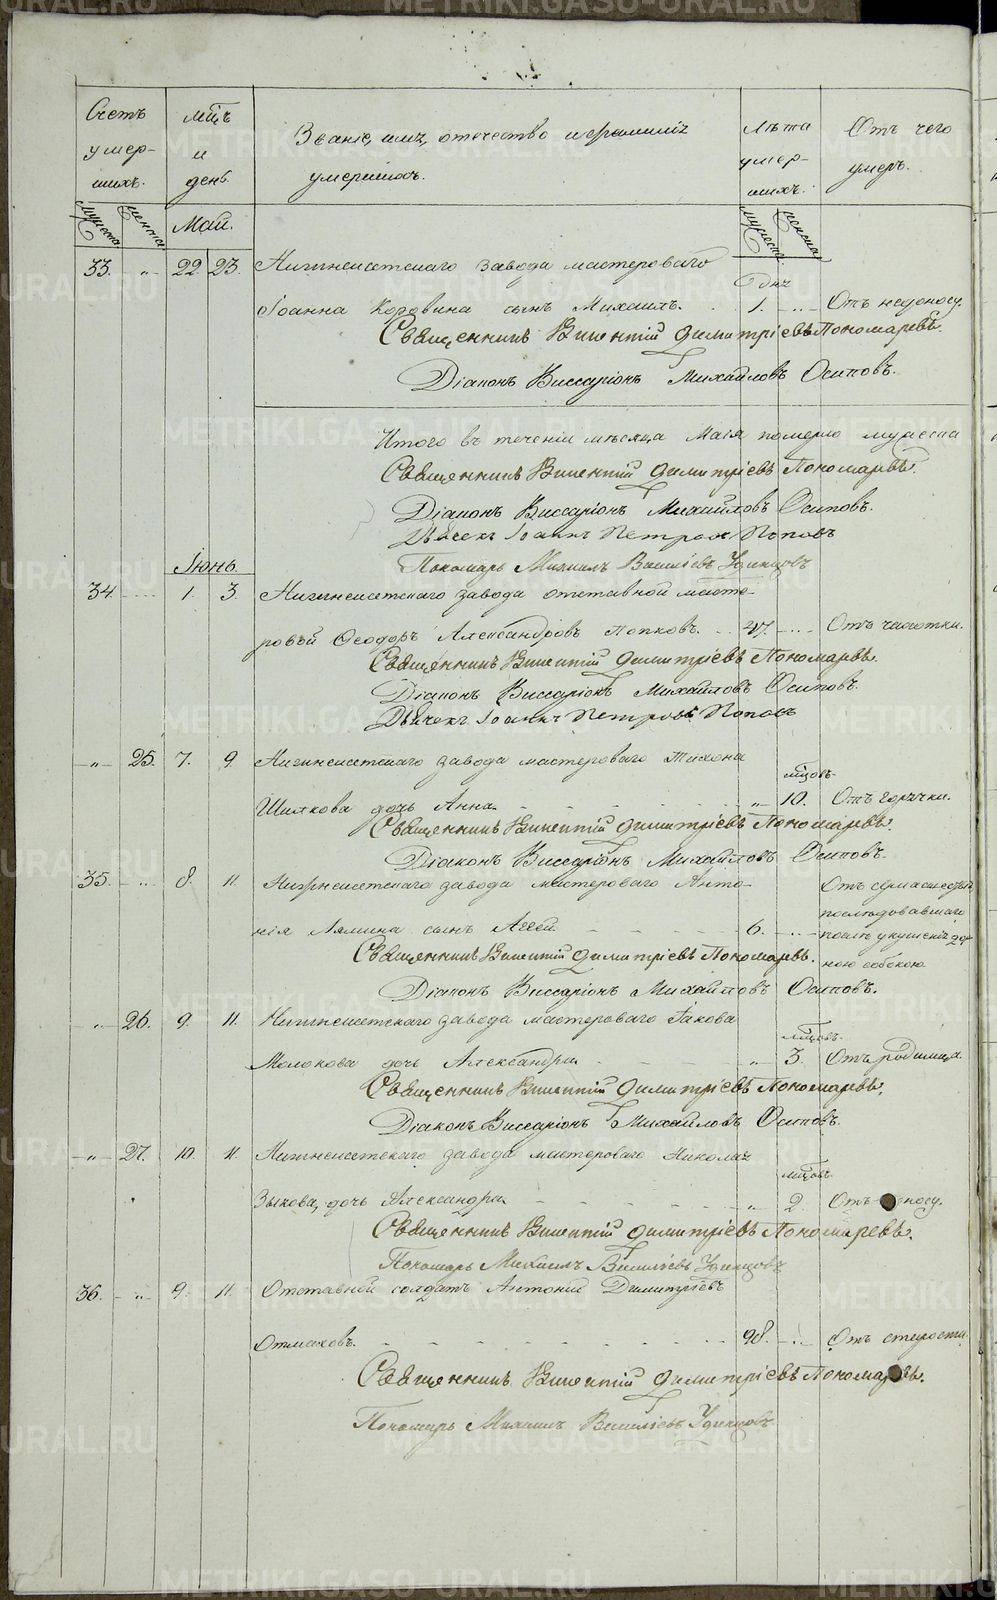 METRIKI.GASO-URAL.RU
Счетъ умер-шихъ.
мѣсцъ и день.
Званіе, имя, отечество и фамилія умершихъ.
Лѣта умер-шихъ.
Отъ чего умеръ.
мужеска женска
Май.
мужеска женска
33. " 22 23 Нижнеисетскаго завода мастероваго
дня
Іоанна Коровина сынъ Михаилъ. 1. Отъ недоносу.
Священникъ Викентій Димитріевъ Пономаревъ.
Діаконъ Виссаріонъ Михайловъ Осиповъ.
Итого въ теченіи мѣсяца Маія померло мужеска
Священникъ Викентій Димитріевъ Пономаревъ.
Діаконъ Виссаріонъ Михайловъ Осиповъ.
Дьячекъ Іоаннъ Петровъ Поповъ
Пономарь Михаилъ Василіевъ Удинцовъ
Іюнь.
34. 1. 3. Нижнеисетскаго завода отставной масте-
ровой Ѳеодоръ Александровъ Попковъ. 47. Отъ чахотки.
Священникъ Викентій Димитріевъ Пономаревъ.
Діаконъ Виссаріонъ Михайловъ Осиповъ.
Дьячекъ Іоаннъ Петровъ Поповъ
" 25. 7. 9. Нижнеисетскаго завода мастероваго Тихона
мѣсцовъ.
дочь Анна. " 10. Отъ горячки.
Священникъ Викентій Димитріевъ Пономаревъ.
Діаконъ Виссаріонъ Михайловъ Осиповъ.
35. " 8. 11. Нижнеисетскаго завода мастероваго Анто- Отъ сумасшествія
послѣдовавшаго
нія Лямина сынъ Аггей 6. послѣ укушенія
ною собакою
Священникъ Викентій Димитріевъ Пономаревъ.
Діаконъ Виссаріонъ Михайловъ Осиповъ.
" 26. 9. 11. Нижнеисетскаго завода мастероваго Іакова
мѣсцовъ.
Молокова дочь Александра " 3. Отъ родимца.
Священникъ Викентій Димитріевъ Пономаревъ.
Діаконъ Виссаріонъ Михайловъ Осиповъ.
" 27. 10. 11. Нижнеисетскаго завода мастероваго Николая
мѣсцовъ.
Зыкова, дочь Александра " 2. Отъ носу.
Священникъ Викентій Димитріевъ Пономаревъ.
Пономарь Михаилъ Василіевъ Удинцовъ
36. " 9. 11. Отставной солдатъ Антоній Димитріевъ
Отмаховъ. 98. Отъ старости
Священникъ Викентій Димитріевъ Пономаревъ.
Пономарь Михаилъ Василіевъ Удинцовъ